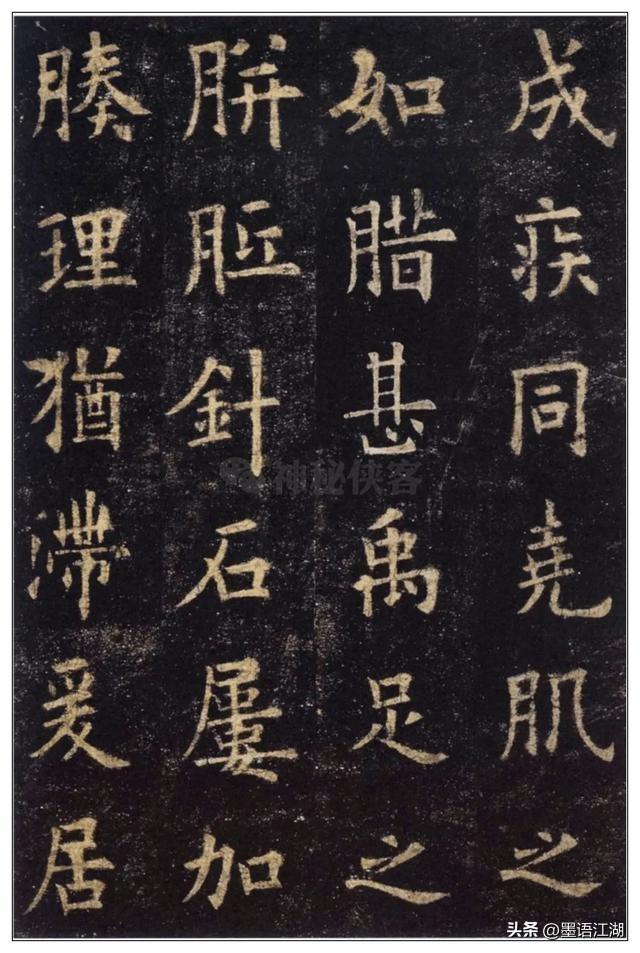 成疾同堯肌之
如腊甚禹足之
胼胝針石屢加
腠理猶滯爰居
神秘侠客
头条 @墨语江湖